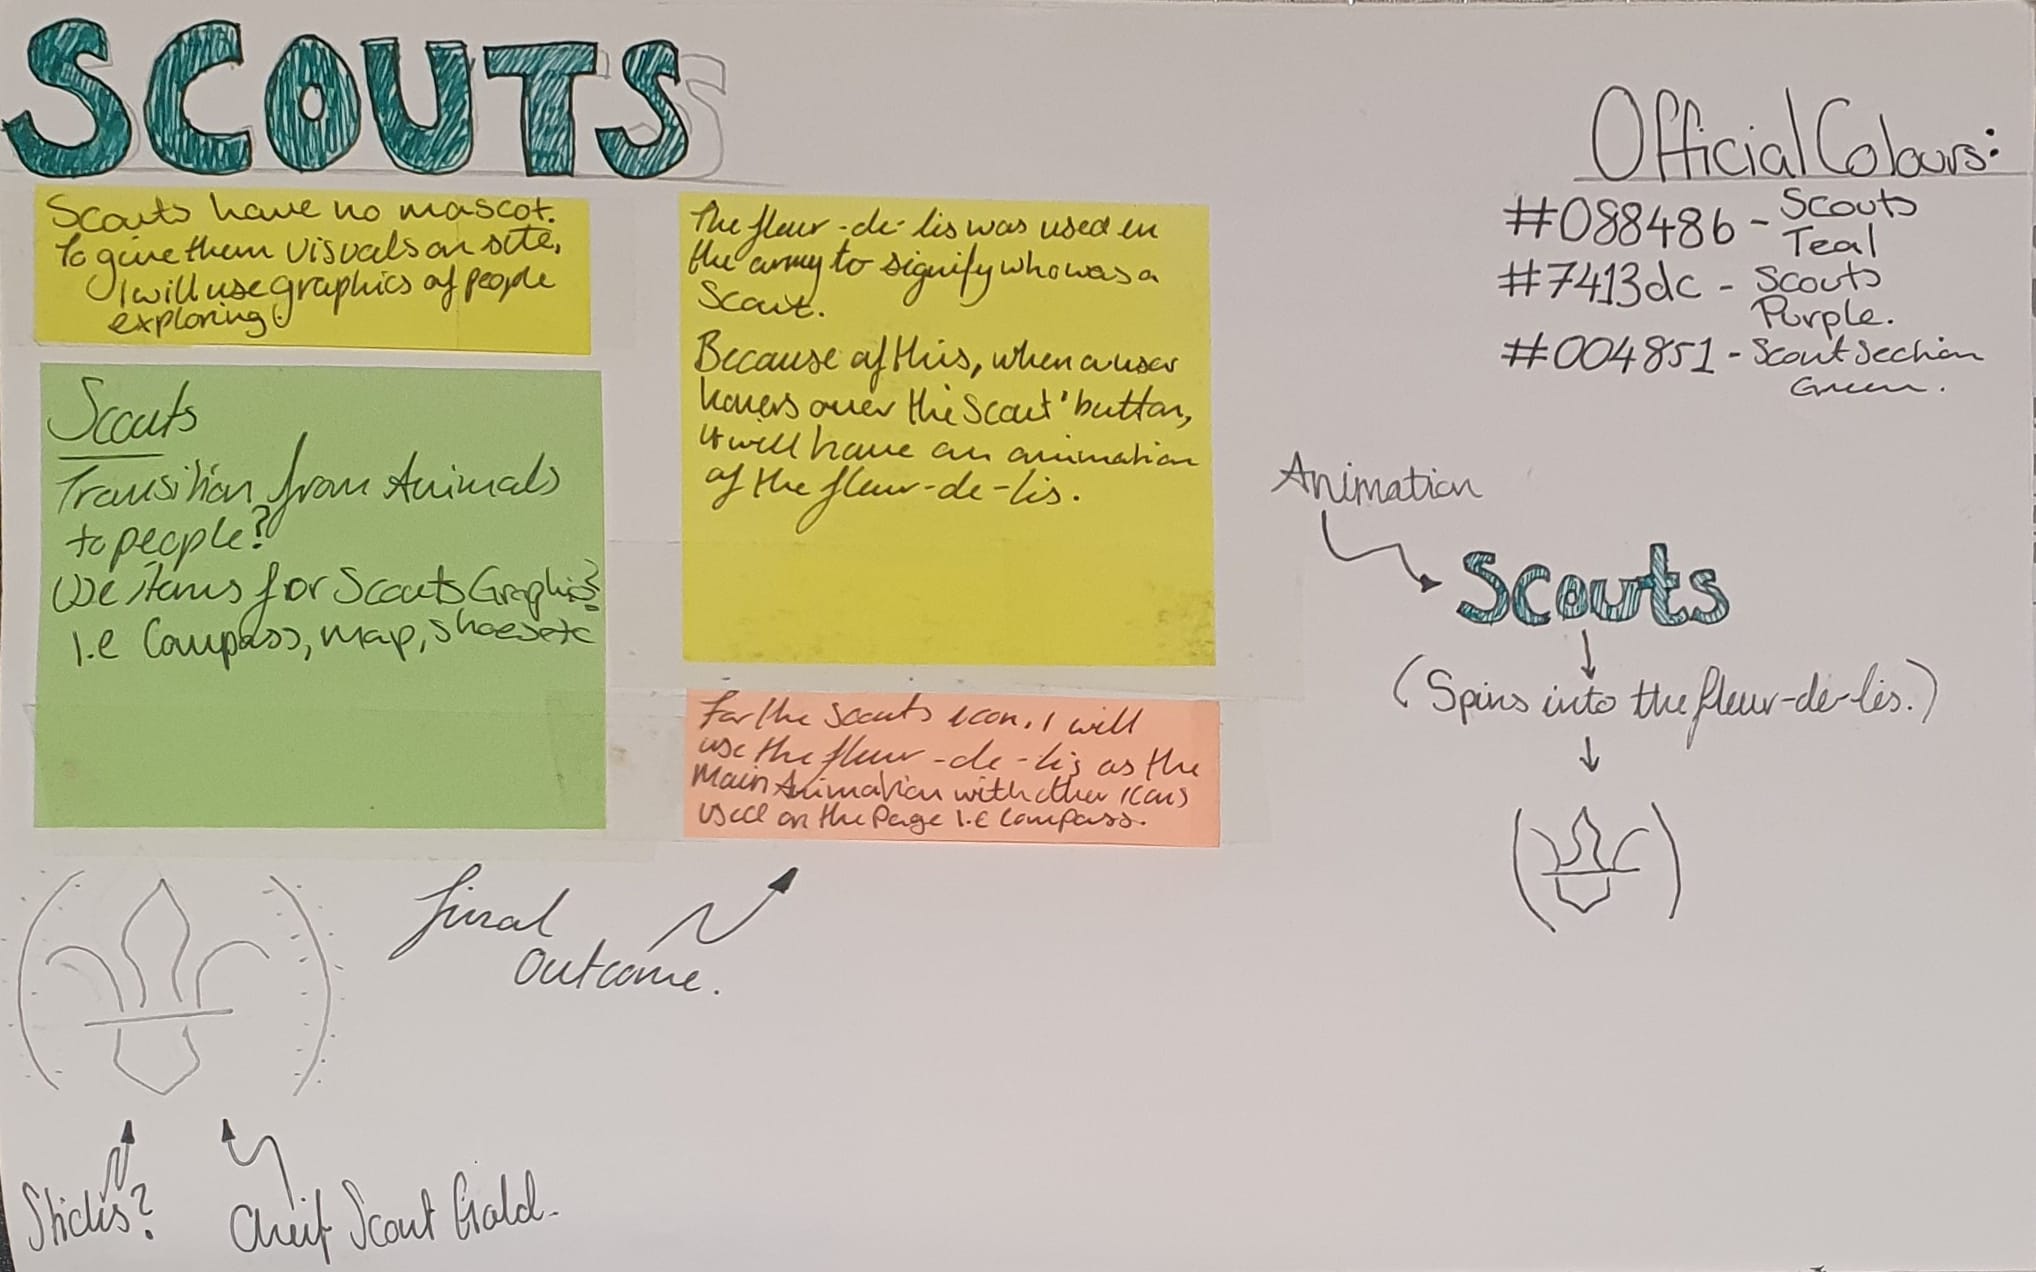 SCOUTS
Scouts have no mascot.
To give them visuals on site,
I will use graphics of people
exploring.
Scouts
Transition from Animals
to people?
Use items for Scouts Graphics?
I.e Compass, map, shoes etc
The fleur-de-lis was used in
the army to signify who was a
Scout.
Because of this, when a user
hovers over the 'Scout' button,
it will have an animation
of the fleur-de-lis.
For the Scouts icon, I will
use the fleur-de-lis as the
Main Animation with other icons
used on the page i.e compass.
final
outcome.
Sticks?
Cheif Scout Gold.
Official Colours:
#088486 - Scouts
Teal
#7413dc - Scouts
Purple.
#004851 - Scout Section
Green.
Animation
Scouts
(Spins into the fleur-de-lis.)